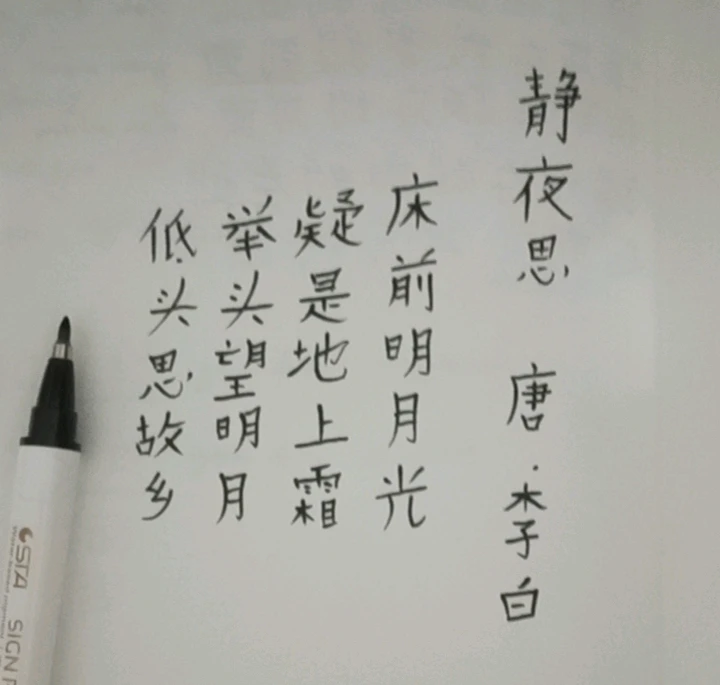 静夜思 唐·李白
床前明月光
疑是地上霜
举头望明月
低头思故乡
STA
SIGN